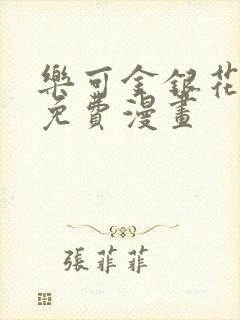 樂可金銀花
免費漫畫
張菲菲